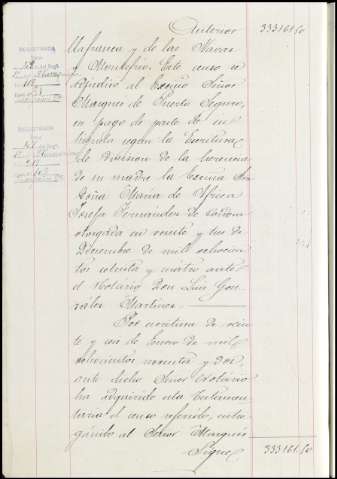 Anterior 333161,50
llafranca y de las Navas
y Montefrio. Este censo se
adjudicó al Excmo Señor
Marques de Puerto Seguro,
en pago de parte de su
hijuela segun la Escritura
de division de la herencia
de su madre la Excma Sra
Doña Maria de Africa
Josefa Fernandez de Cordoba
otorgada en veinte y tres de
Diciembre de mil ochocien-
tos ochenta y cuatro ante
el Notario Don Luis Gon-
zalez Martinez.
Por escritura de vein-
te y uno de Enero de mil
ochocientos noventa y dos,
ante dicho Señor Notario
ha adquirido esta Testamen-
taria el censo referido, entre-
gándo al Señor Marqués
Sigue 333161,50